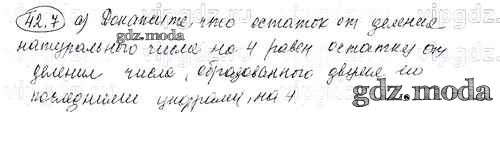 42.7 а) Докажите, что остаток от деления
натурального числа на 4 равен остатку от
gdz.moda
деления числа, образованного двумя его
последними цифрами, на 4.
gdz.moda